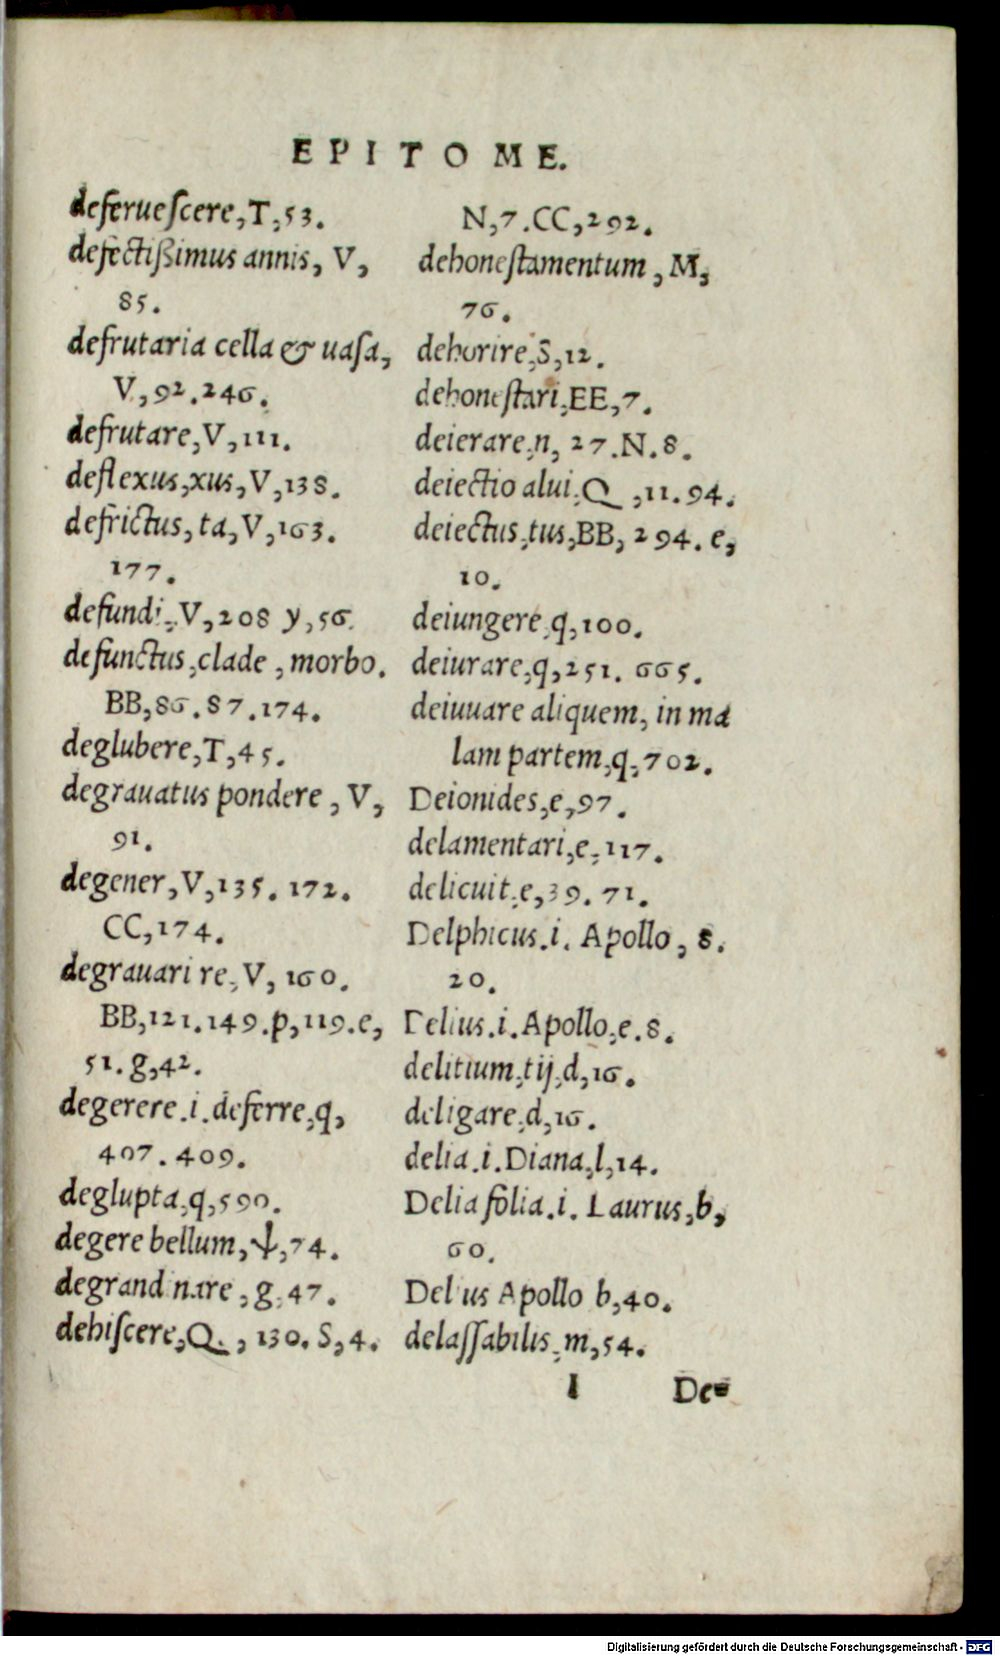 EPITOME.
deferueſcere, T, 53.
defectiſsimus annis, V,
85.
defrutaria cella & uaſa,
V, 92. 246.
defrutare, V, 111.
deflexus, xus, V, 138.
defrictus, ta, V, 163.
177.
defundi, V, 208 y, 56.
defunctus, clade, morbo.
BB, 86. 87. 174.
deglubere, T, 45.
degrauatus pondere, V,
91.
degener, V, 135. 172.
CC, 174.
degrauari re, V, 160.
BB, 121. 149. p, 119. e,
51. g, 42.
degerere .i. deferre, q,
407. 409.
deglupta, q, 590.
degere bellum, ψ, 74.
degrandinare, g, 47.
dehiſcere, Q, 130. S, 4.
N, 7. CC, 292.
dehoneſtamentum, M,
76.
dehorire, S, 12.
dehoneſtari, EE, 7.
deierare, n, 27. N. 8.
deiectio alui, Q, 11. 94.
deiectus, tus, BB, 294. e,
10.
deiungere, q, 100.
deiurare, q, 251. 665.
deiuuare aliquem, in ma
lam partem, q, 702.
Deionides, e, 97.
delamentari, e, 117.
delicuit, e, 39. 71.
Delphicus .i. Apollo, 8.
20.
Delius .i. Apollo, e. 8.
delitium, tij, d, 16.
deligare, d, 16.
delia .i. Diana, l, 14.
Delia folia .i. Laurus, b,
60.
Delius Apollo b, 40.
delaſſabilis, m, 54.
I De-
Digitalisierung gefördert durch die Deutsche Forschungsgemeinschaft - DFG